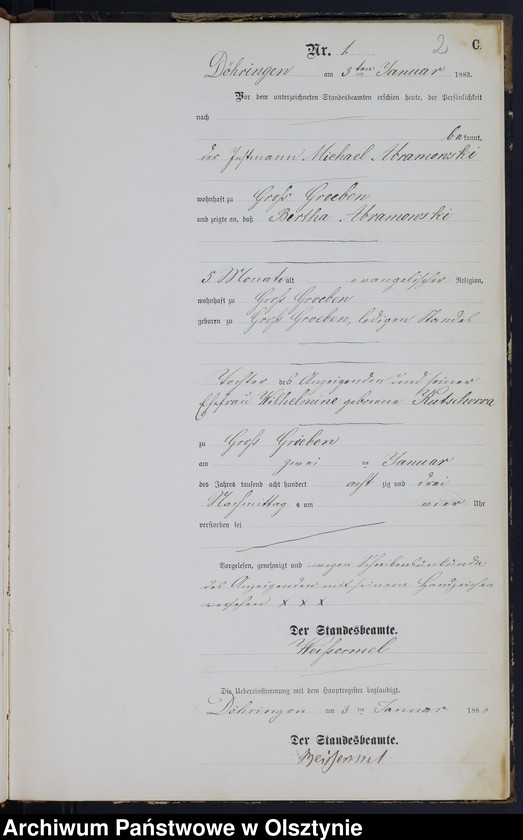 Nr. 1. 2 C.
Döhringen am 3ten Januar 1883.
Vor dem unterzeichneten Standesbeamten erschien heute, der Persönlichkeit
nach
bekannt,
der Instmann Michael Abramowski
wohnhaft zu Groß Groeben
und zeigte an, daß Bertha Abramowski
5 Monate alt evangelischer Religion,
wohnhaft zu Groß Groeben
geboren zu Groß Groeben, ledigen Standes
Tochter des Anzeigenden und seiner
Ehefrau Wilhelmine geborene Kutschorra
zu Groß Groeben
am zwei ten Januar
des Jahres tausend acht hundert acht zig und drei
Nachmittags um vier Uhr
verstorben sei
Vorgelesen, genehmigt und wegen Schreibensunkunde
des Anzeigenden mit seinem Handzeichen
versehen x x x
Der Standesbeamte.
Weißermel
Die Uebereinstimmung mit dem Hauptregister beglaubigt.
Döhringen am 3 ten Januar 188
Der Standesbeamte.
Weißermel
Archiwum Państwowe w Olsztynie